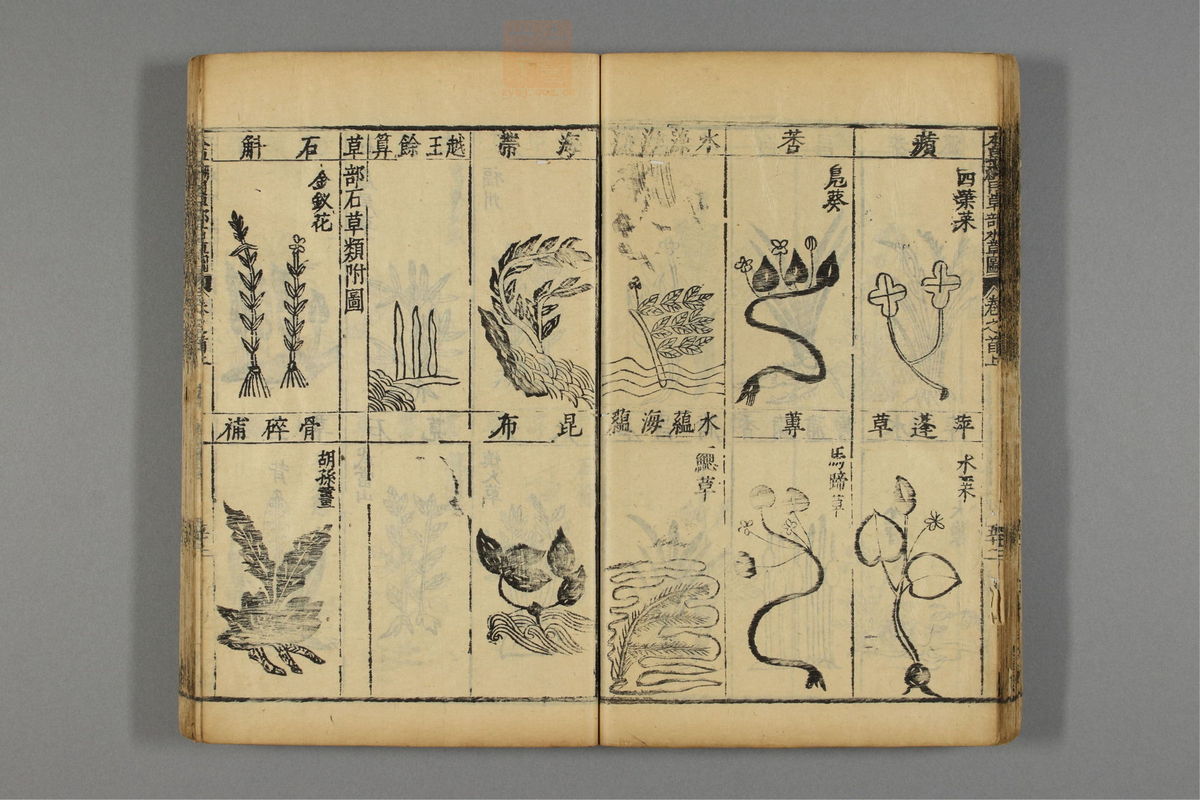 蘋
四葉菜
荇
鳬葵
水藻海藻
萍蓬草
水栗
蓴
馬蹄草
水蘊海蘊
䰐草
海帶
越王餘算
昆布
草部石草類附圖
石斛
金釵花
骨碎補
胡孫薑